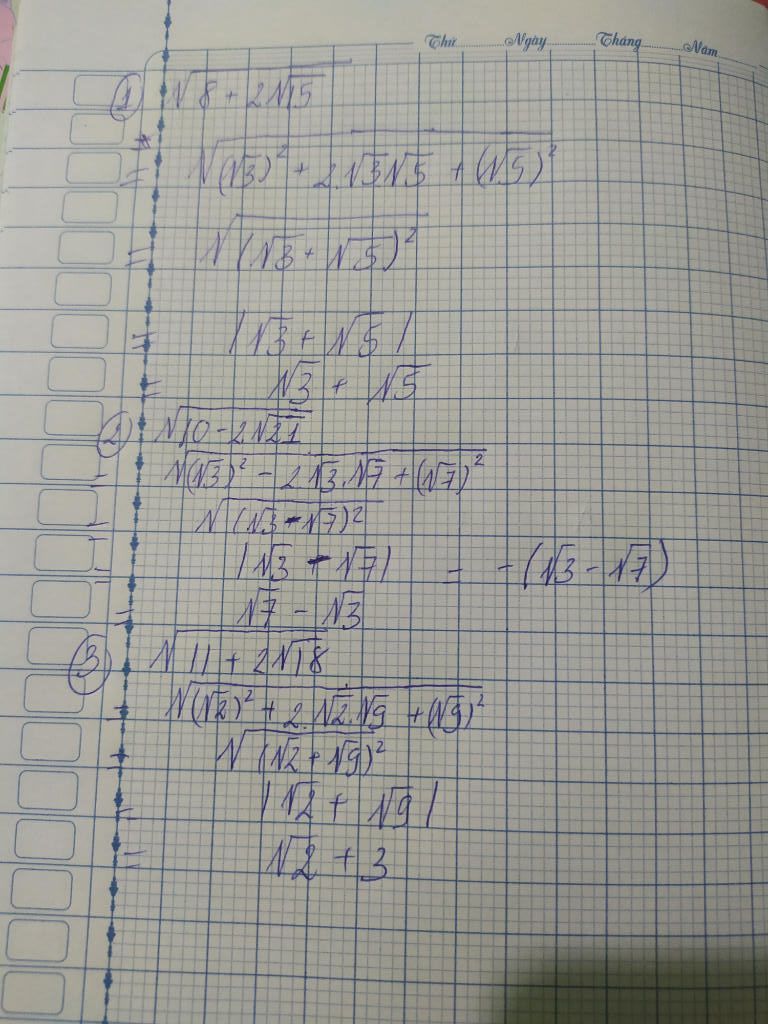 Thứ Ngày Tháng Năm
① √(8 + 2√15)
= √((√3)² + 2.√3√5 + (√5)²)
= √((√3 + √5)²)
= |√3 + √5|
= √3 + √5
② √(10 - 2√21)
= √((√3)² - 2√3.√7 + (√7)²)
= √((√3 - √7)²)
= |√3 - √7| = -(√3 - √7)
= √7 - √3
③ √(11 + 2√18)
= √((√2)² + 2.√2.√9 + (√9)²)
= √((√2 + √9)²)
= |√2 + √9|
= √2 + 3